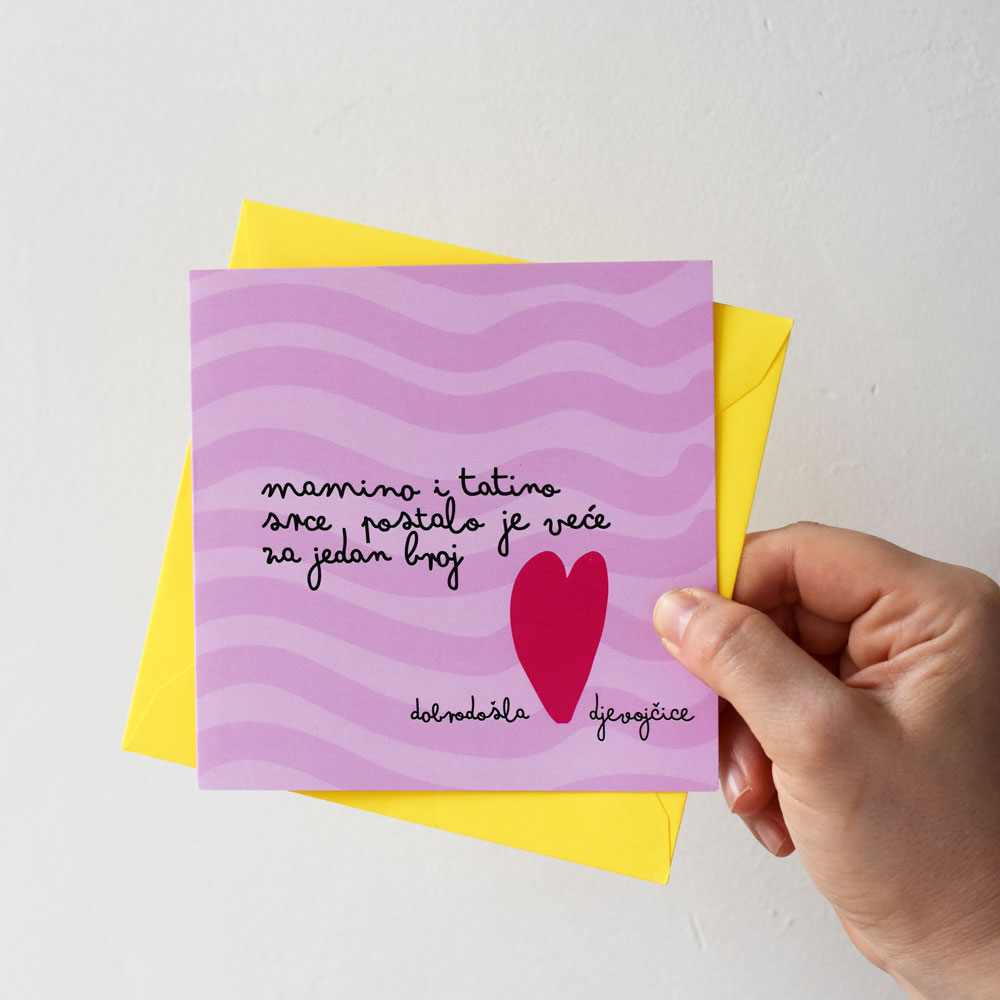 mamino i tatino
srce postalo je veće
za jedan broj
dobrodošla djevojčice